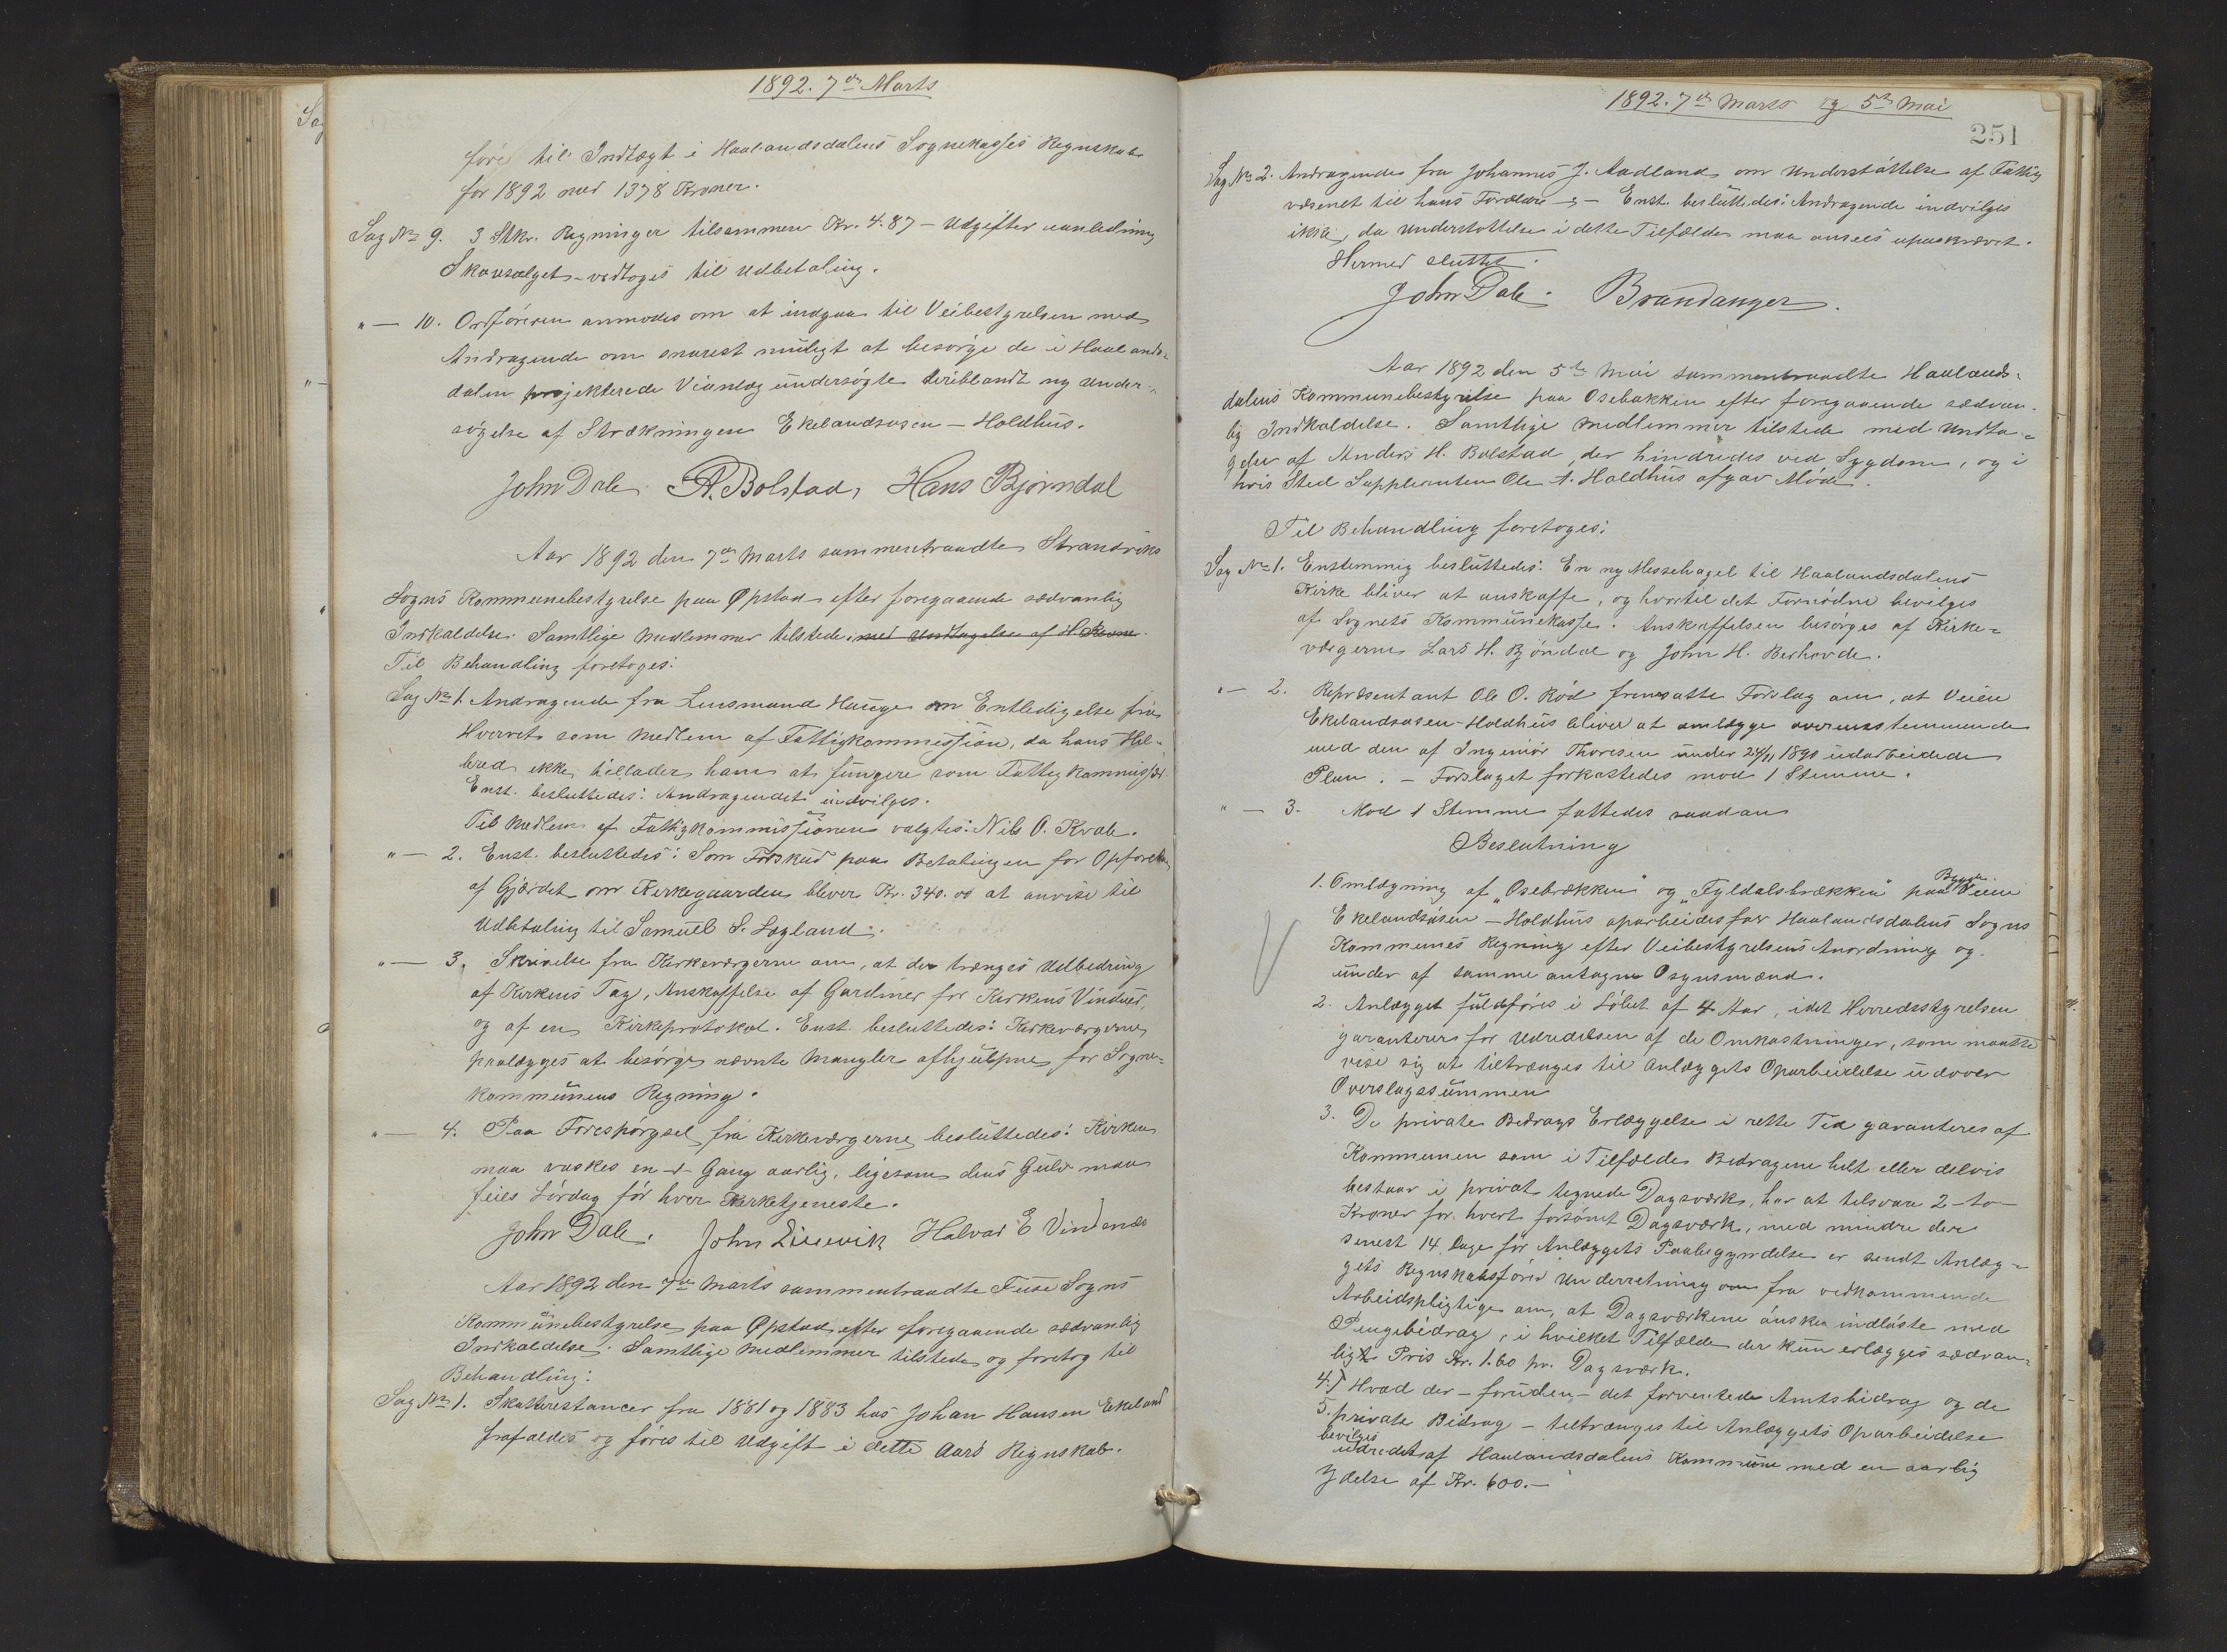 1892. 7de Marts
føres til Indtægt i Haalandsdalens Sognekasses Regnskab
for 1892 med 1378 Kroner.
Sag No 9. 3 Stkr. Regninger tilsammen Kr. 4.87 – Udgifter i anledning
Skovsalget – vedtoges til Udbetaling.
" — 10. Ordføreren anmodes om at indgaa til Veibestyrelsen med
Andragende om snarest muligt at besørge de i Haalands-
dalen projekterede Veianlæg undersøgte heriblandt ny Under-
søgelse af Strækningen Ekelandsosen – Holdhus.
John Dale A. Bolstad, Hans Bjørndal
Aar 1892 den 7de Marts sammentraadte Strandviks
Sogns Kommunebestyrelse paa Øpstad efter foregaaende sædvanlig
Indkaldelse. Samtlige Medlemmer tilstede med Undtagelse af H.
Til Behandling foretoges:
Sag No 1. Andragende fra Lensmand Hauge om Entledigelse fra
Hvervet som Medlem af Fattigkommission, da hans Hel-
bred ikke tillader ham at fungere som Fattigkommissær.
Enst. besluttedes: Andragendet indvilges.
Til Medlem af Fattigkommissionen valgtes: Nils O. Kvale.
" — 2. Enst. besluttedes: Som Forskud paa Betalingen for Opførelsen
af Gjærdet om Kirkegaarden bliver Kr. 340.00 at anvise til
Udbetaling til Samuel S. Løgland.
" — 3. Skrivelse fra Kirkeværgerne om, at der trænges Udbedring
af Kirkens Tag, Anskaffelse af Gardiner for Kirkens Vinduer,
og af en Kirkeprotokol. Enst. besluttedes: Kirkeværgerne
paalægges at besørge nævnte Mangler afhjulpne for Sogne-
kommunens Regning.
" — 4. Paa Forespørgsel fra Kirkeværgerne besluttedes: Kirken
maa vaskes en -1- Gang aarlig, ligesom dens Gulv maa
feies Lørdag før hver Kirketjeneste.
John Dale. John Lillevik Halvar E Vindenes
Aar 1892 den 7de Marts sammentraadte Fuse Sogns
Kommunebestyrelse paa Øpstad efter foregaaende sædvanlig
Indkaldelse. Samtlige Medlemmer tilstede og foretog til
Behandling:
Sag No 1. Skatterestancer fra 1881 og 1883 hos Johan Hansen Ekeland
frafaldes og føres til Udgift i dette Aars Regnskab.
1892. 7de Marts og 5te Mai
251
Sag No 2. Andragende fra Johannes J. Aadland om Understøttelse af Fattig
væsenet til hans Forældre – Enst. besluttedes: Andragende indvilges
ikke, da Understøttelse i dette Tilfælde maa ansees upaakrævet.
Hermed sluttet.
John Dale. Brandanger.
Aar 1892 den 5te Mai sammentraadte Haalands-
dalens Kommunebestyrelse paa Osebakken efter foregaaende sædvan-
lig Indkaldelse. Samtlige Medlemmer tilstede med Undta-
gelse af Anders H. Bolstad, der hindredes ved Sygdom, og i
hvis Sted Suppleanten Ole A. Holdhus afgav Møde.
Til Behandling foretoges:
Sag No 1. Enstemmig besluttedes: En ny Messehagel til Haalandsdalens
Kirke bliver at anskaffe, og hvortil det Fornødne bevilges
af Sognets Kommunekasse. Anskaffelsen besørges af Kirke-
værgerne Lars H. Bjøndal og John H. Berhovde.
" — 2. Repræsentant Ole O. Rød fremsatte Forslag om, at Veien
Ekelandsosen – Holdhus bliver at omlægge overensstemmende
med den af Ingeniør Thoresen under 24/11 1890 udarbeidede
Plan. – Forslaget forkastedes mod 1 Stemme.
" — 3. Mod 1 Stemme fattedes saadan
Beslutning
1. Omlægning af "Osebrækken" og "Tyldalsbrækken" paa Bygde Veien
Ekelandsosen – Holdhus oparbeides for Haalandsdalens Sogns
Kommunes Regning efter Veibestyrelsens Anordning og
under af samme antagne Opsynsmænd.
2. Anlægget fuldføres i Løbet af 4 Aar, idet Herredsstyrelsen
garanterer for Udredelsen af de Omkostninger, som maatte
vise sig at tiltrænges til Anlæggets Oparbeidelse udover
Overslagssummen
3. De private Bidrags Erlæggelse i rette Tid garanteres af
Kommunen som i Tilfælde Bidragene helt eller delvis
bestaar i privat tegnede Dagsværk, har at tilsvare 2 – to –
Kroner for hvert forsømt Dagsværk, med mindre der
senest 14 Dage før Anlæggets Paabegyndelse er sendt Anlæg-
gets Regnskabsfører Underretning om fra vedkommende
Arbeidspligtige om, at Dagsværkene ønskes indløste med
Pengebidrag, i hvilket Tilfælde der kun erlægges sædvan-
ligt Pris Kr. 1.60 pr. Dagsværk.
4.) Hvad der – foruden – det forventede Amtsbidrag og de
5. private Bidrag – tiltrænges til Anlæggets Oparbeidelse
bevilges
udredet af Haalandsdalens Kommune med en aarlig
Ydelse af Kr. 600.–